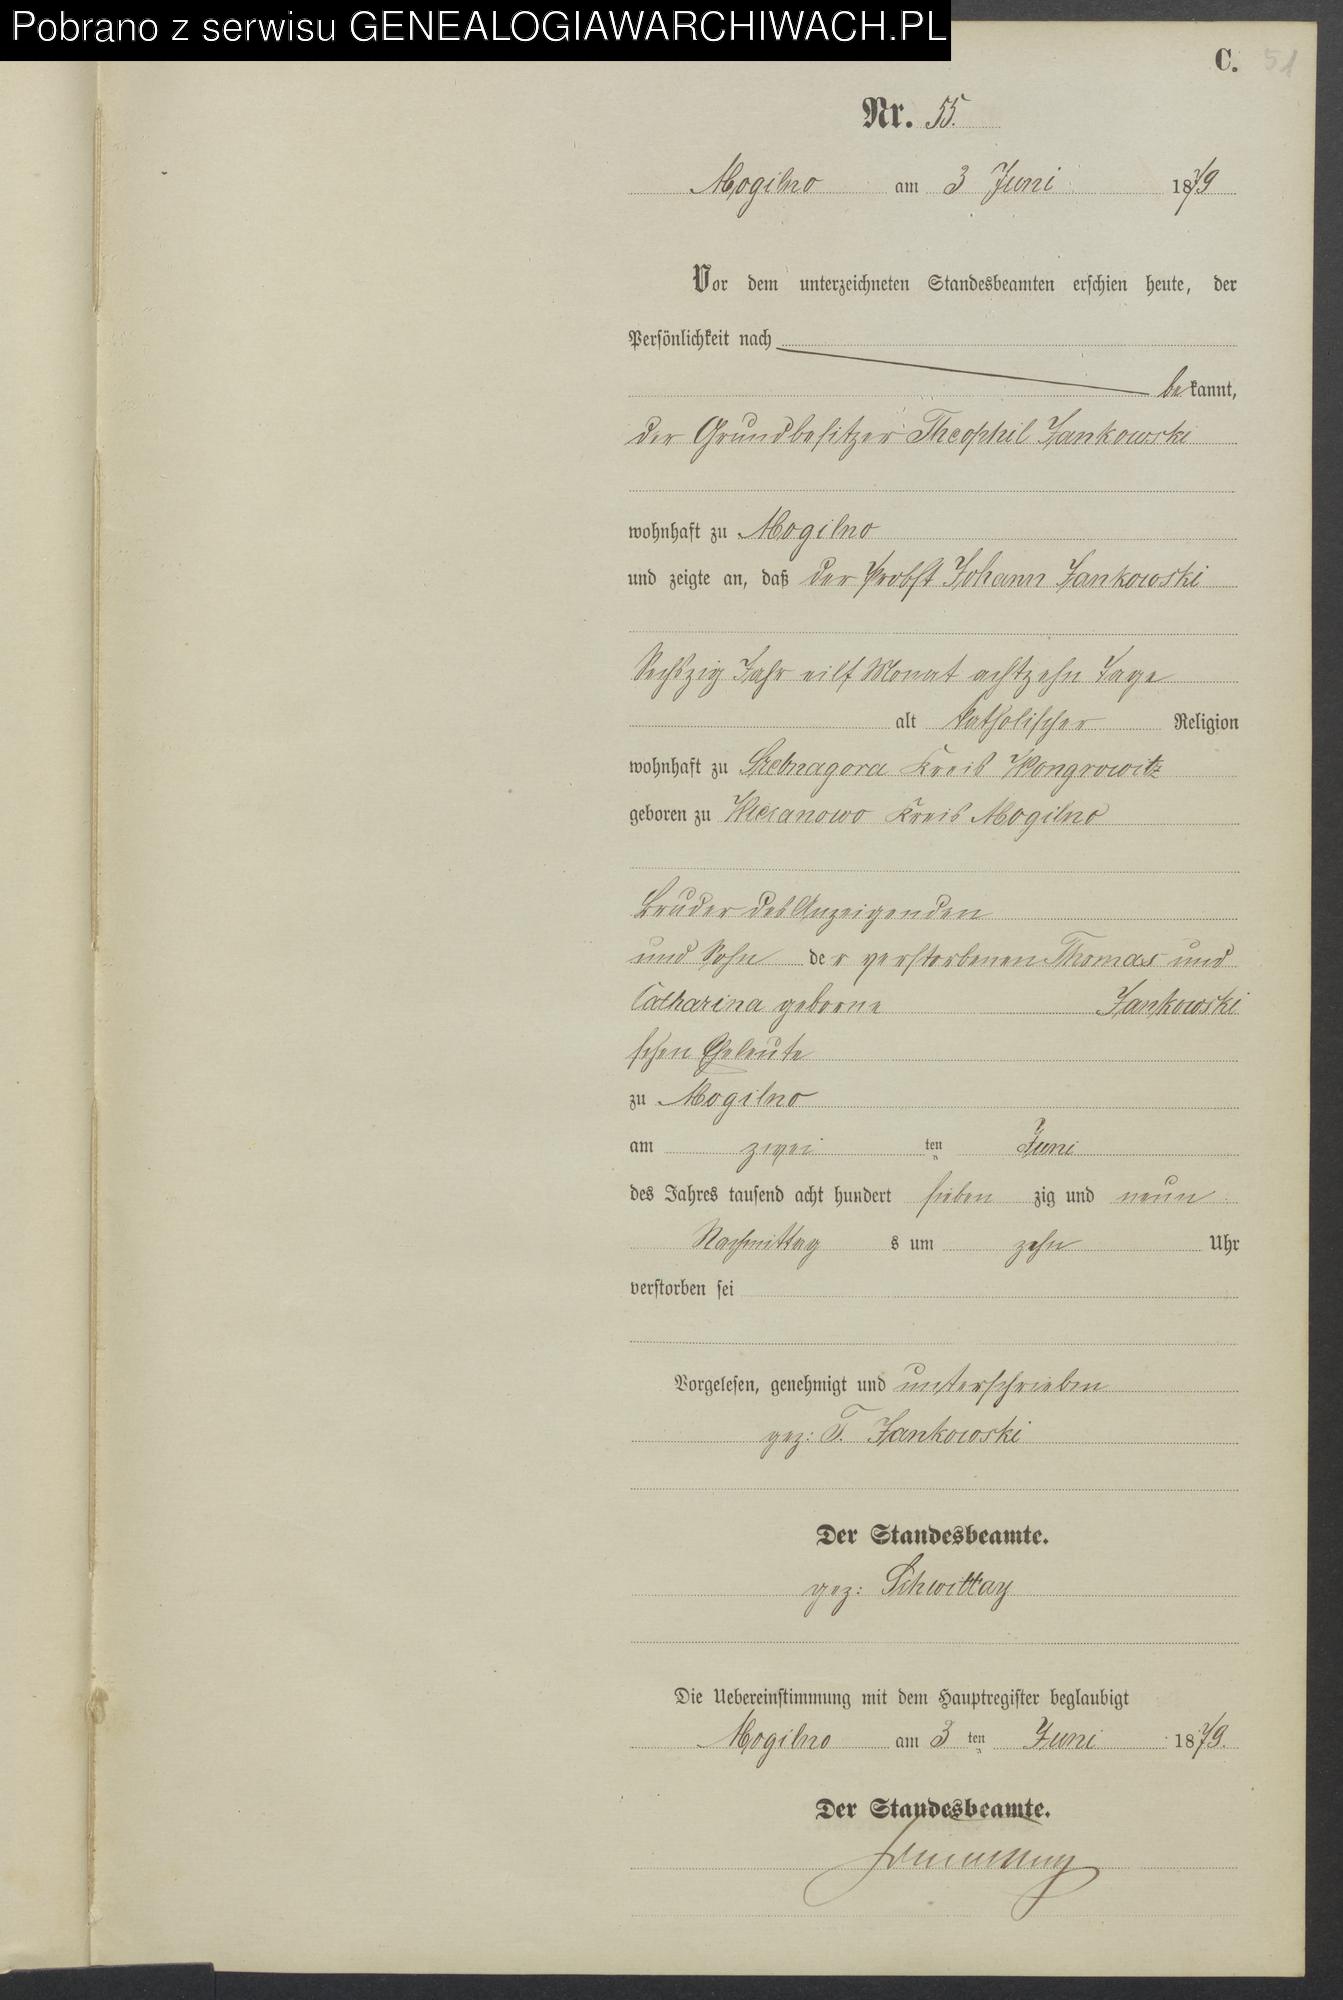 Pobrano z serwisu GENEALOGIAWARCHIWACH.PL
C. 51
Nr. 55.
Mogilno am 3 Juni 1879
Vor dem unterzeichneten Standesbeamten erschien heute, der
Persönlichkeit nach
bekannt,
der Grundbesitzer Theophil Jankowski
wohnhaft zu Mogilno
und zeigte an, daß der Probst Johann Jankowski
Sechszig Jahr eilf Monat achtzehn Tage
alt katholischer Religion
wohnhaft zu Srebnagora Kreis Wongrowitz
geboren zu Kreis Mogilno
Bruder des Anzeigenden
und Sohn der verstorbenen Thomas und
Catharina geborne Jankowski
schen Eheleute
zu Mogilno
am zwei ten Juni
des Jahres tausend acht hundert sieben zig und neun
Nachmittag s um zehn Uhr
verstorben sei
Vorgelesen, genehmigt und unterschrieben
gez: T. Jankowski
Der Standesbeamte.
gez: Schwittay
Die Uebereinstimmung mit dem Hauptregister beglaubigt
Mogilno am 3 ten Juni 1879.
Der Standesbeamte.